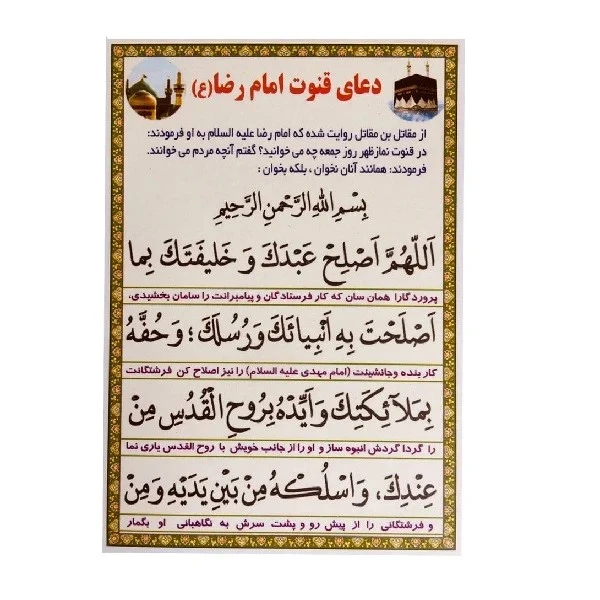 دعای قنوت امام رضا(ع)
از مقاتل بن مقاتل روایت شده که امام رضا علیه السلام به او فرمودند:
در قنوت نماز ظهر روز جمعه چه می خوانید؟ گفتم آنچه مردم می خوانند.
فرمودند: همانند آنان نخوان ، بلکه بخوان :
بِسْمِ اللهِ الرَّحْمنِ الرَّحِیمِ
اَللّهُمَّ اَصْلِحْ عَبْدَكَ وَ خَلیفَتَكَ بِما
پروردگارا همان سان که کار فرستادگان و پیامبرانت را سامان بخشیدی،
اَصْلَحْتَ بِهِ اَنْبِیائَكَ وَ رُسُلَكَ ؛ وَ حُفَّهُ
کار بنده و جانشینت (امام مهدی علیه السلام) را نیز اصلاح کن فرشتگانت
بِمَلآئِکَتِكَ وَ اَیِّدْهُ بِرُوحِ الْقُدُسِ مِنْ
را گردا گردش انبوه ساز و او را از جانب خویش با روح القدس یاری نما
عِنْدِكَ، وَ اسْلُکْهُ مِنْ بَیْنِ یَدَیْهِ وَ مِنْ
و فرشتگانی را از پیش رو و پشت سرش به نگاهبانی او بگمار